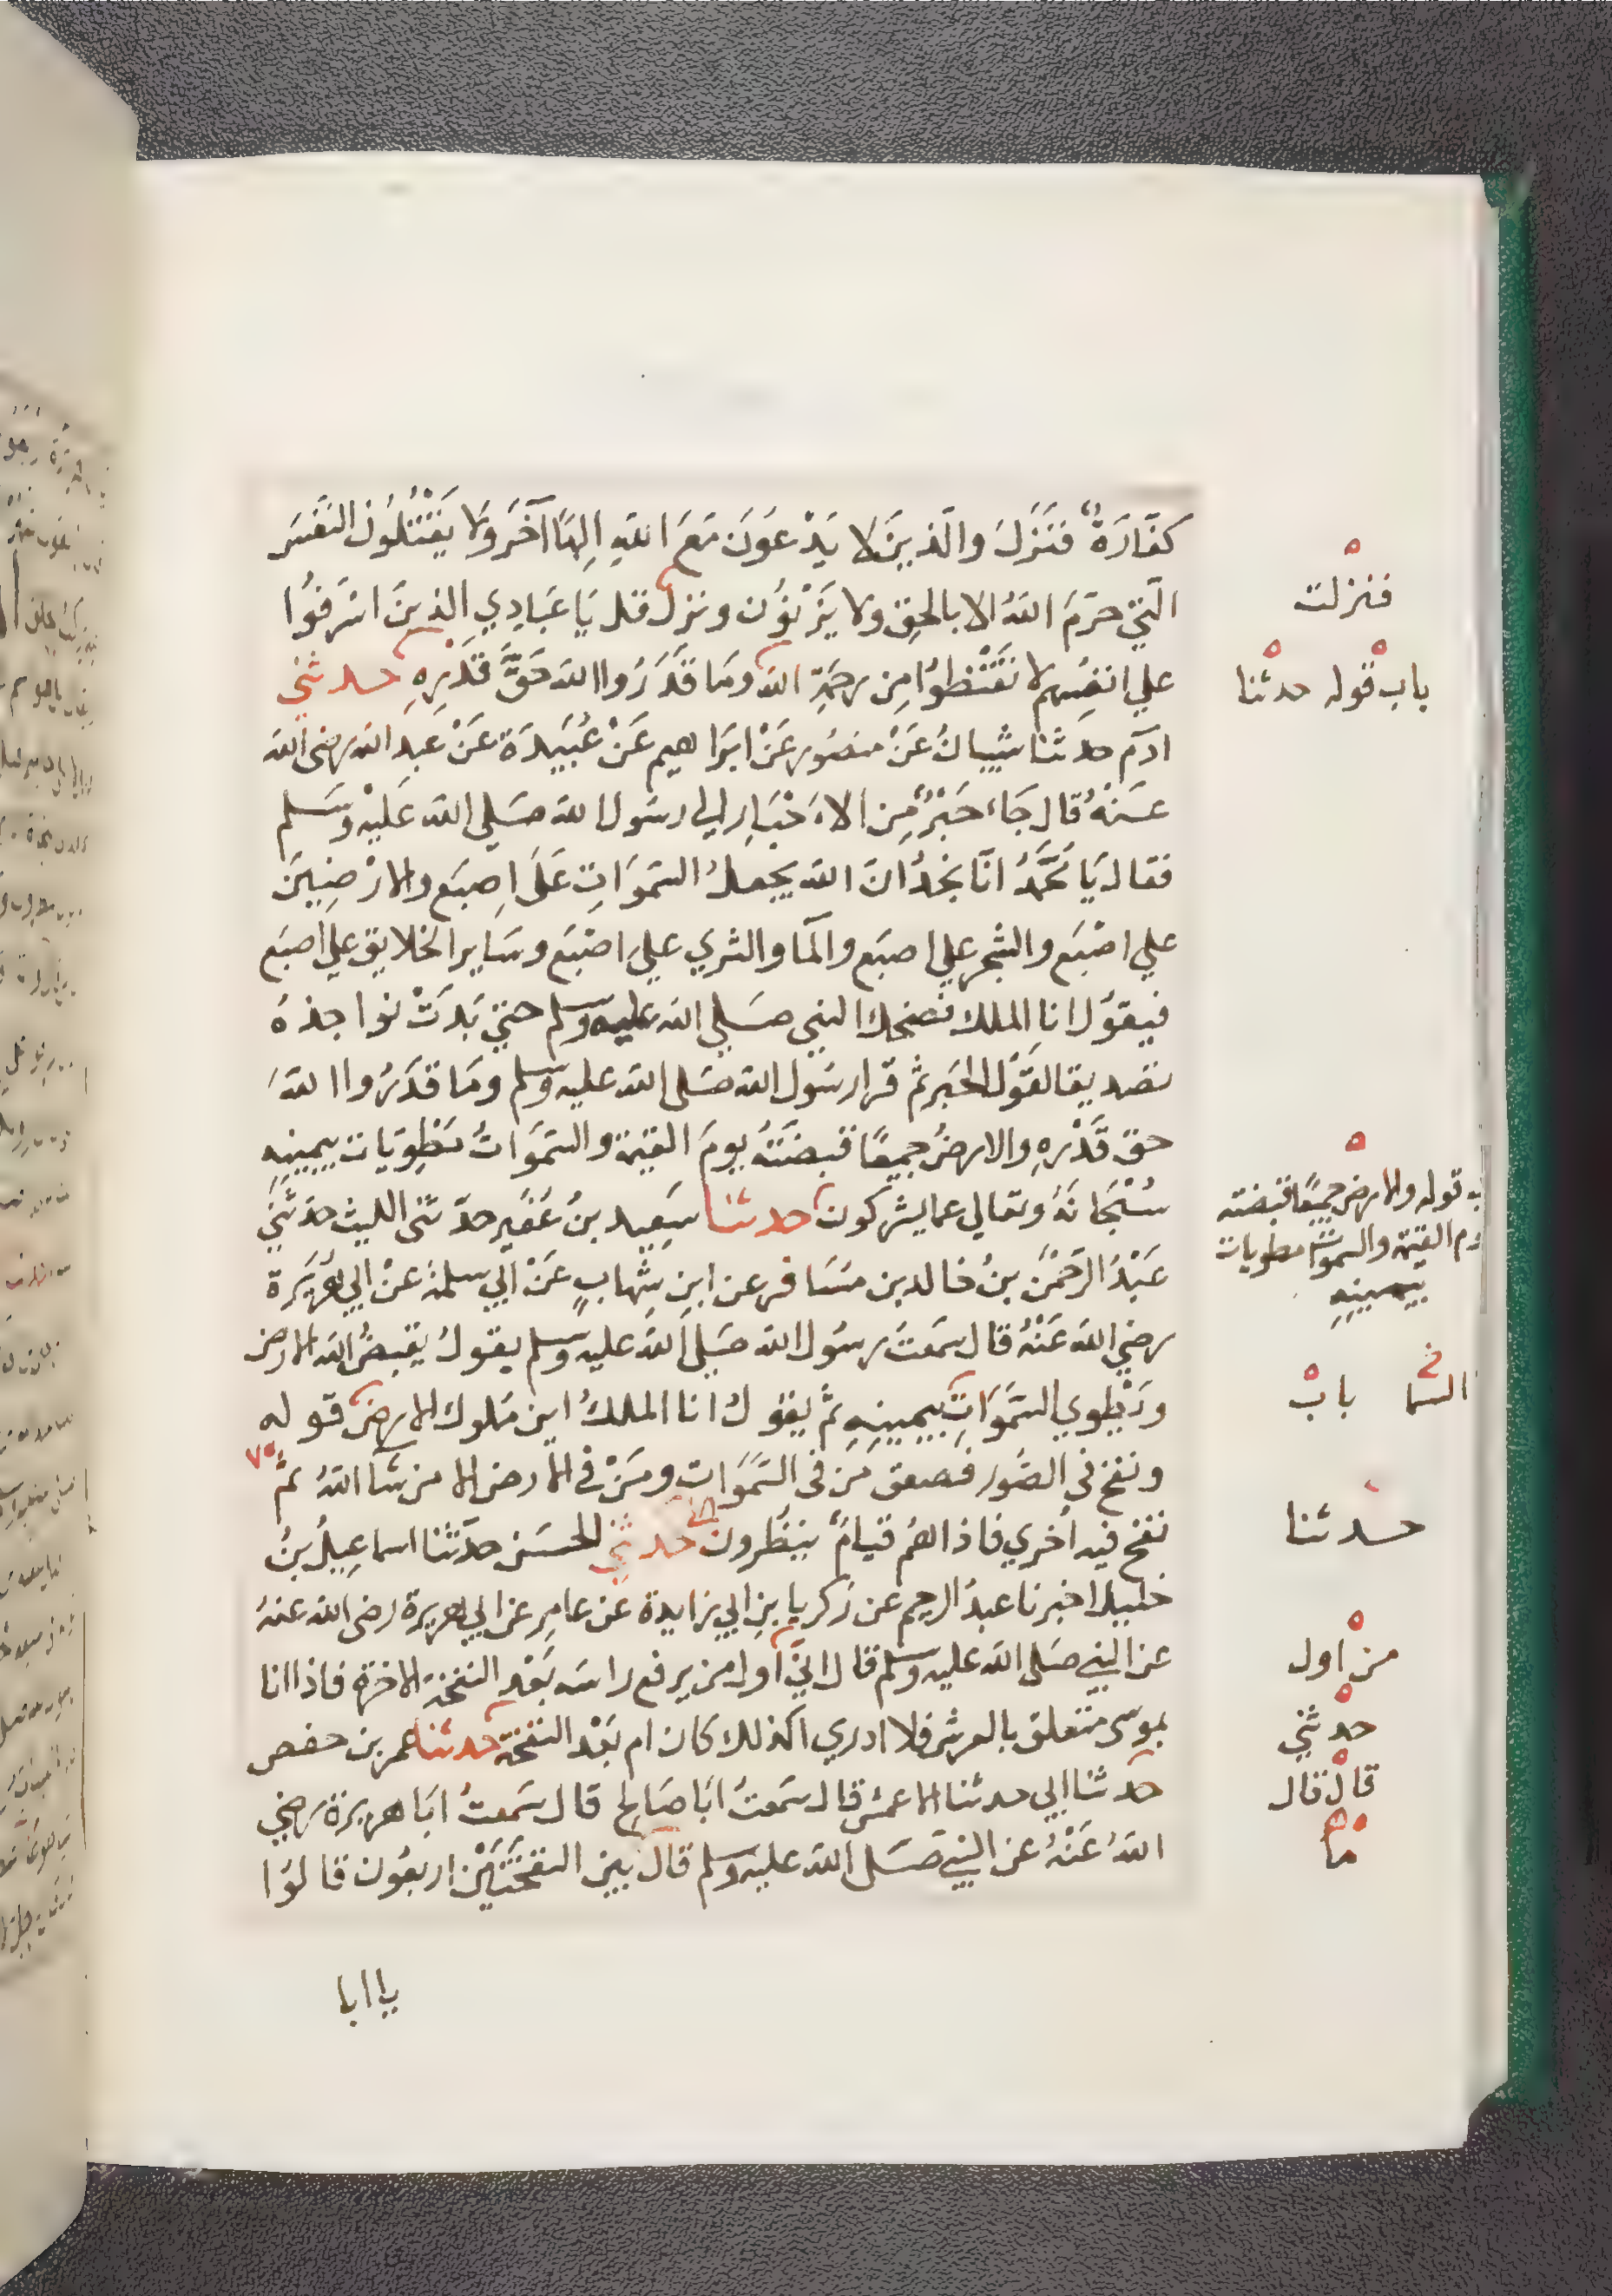 كفَّارَةٌ فَنَزَلَ والَّذينَ لا يَدْعَوُنَ مَعَ اللهِ اِلهًا آخَرَ وَلا يَقْتُلُونَ النَفْسَ
الَّتي حرّمَ اللهُ الا بالحقِ ولا يَزْنوُن ونزل قل يَا عِبَادِي الذينَ اسْرَفوُا
علي انفسِهم لا تَقْنَطوُا مِن رحمَةِ الله ومَا قَدَرَُوا الله حَقَّ قَدْرِهِ حدثني
ادم حدثنا شيبانُ عَنْ منصُور عَنْ ابرَاهيم عَنْ عُبَيدَة عَنْ عَبد الله رضى الله
عَنْهُ قال جَاءَ حَبْرٌ مِن الاحْبَارِ الي رسَول الله صَلي الله عَليْهِ وسَلم
فقال يَا مُحَمَّدُ انَّا نجدُ انَ الله يجعلُ السّموَاتِ عَلَى اِصبَع والارْضِينَ
علي اصْبَع والشجر علي اصبَع والمآ والثري علي اصْبَع وسَاير الخلايق علي اصبَع
فيقوُل انا الملك فضحك النبي صَلي الله عليه وسلم حتي بَدَتْ نواجذهُ
تصديقا لقَوْل الحَبر ثم قرا رسَول الله صَلى الله عليه وسلم ومَا قدَرُوا اللهَ
حق قَدْرِهِ والارضُ جميعًا قبضَتهُ يومَ القيمة والسّمَوَاتُ مَطْوِيَات بيمينِهِ
سُبْحَانَهُ وتعَالي عما يشركون حدثنا سَعِيد بنُ عُفَير حدّثنى الليث حدَثَني
عَبْدُ الرَحْمَن بنُ خالد بن مسَافر عن ابنِ شِهابٍ عَنْ ابي سلمة عَنْ ابي هُرَيَرة
رضي الله عَنْهُ قال سَمعتَ رسَول الله صَلى الله عليه وسلم يقولُ يقبضُ الله الارض
وَيَطْوِي السَّمَوَاتِ بِيَمينِهِ ثمَّ يقوُل انا الملكُ اين مَلوك الارض قوله
ونفخ في الصُور فصعق مَن في السَّمَوَات ومَنْ في الارض الا من شآ اللهُ ثمَّ
نفخ فيه اُخري فاذا هُم قيامٌ ينظُرون حدثني الحسَن حدَثنا اسماعِيلُ بنُ
خليل اخبرنا عبدُ الرحيم عن زكريا بنِ ابي زايدة عَن عامِر عن ابي هريرة رضى الله عنهُ
عن النبي صَلى الله عليه وسلم قال انّي اول من يرفع راسَه بَعْد النفخة الاخرة فاذا انا
بموسى متعلق بالعرش فلا ادري اكذلك كان ام بَعْد النفخة حدثنا عمر بن حفص
حدثنا ابي حدثنا الاعمش قال سَمعتُ ابَا صَالِح قال سَمعتُ ابَا هريرة رضي
اللهُ عَنْهُ عن النبي صَلى الله عليه وسَلم قال بين النفخَتَيْن اربعُون قالوُا
يا ابا
فنزلت
باب قوله حدثنا
قوله والارض جميعًا قبضته
القيمة والسموات مطويات
بيمينِهِ
السما باب
حدثنا
من اول
حدثني
قال قال
ما